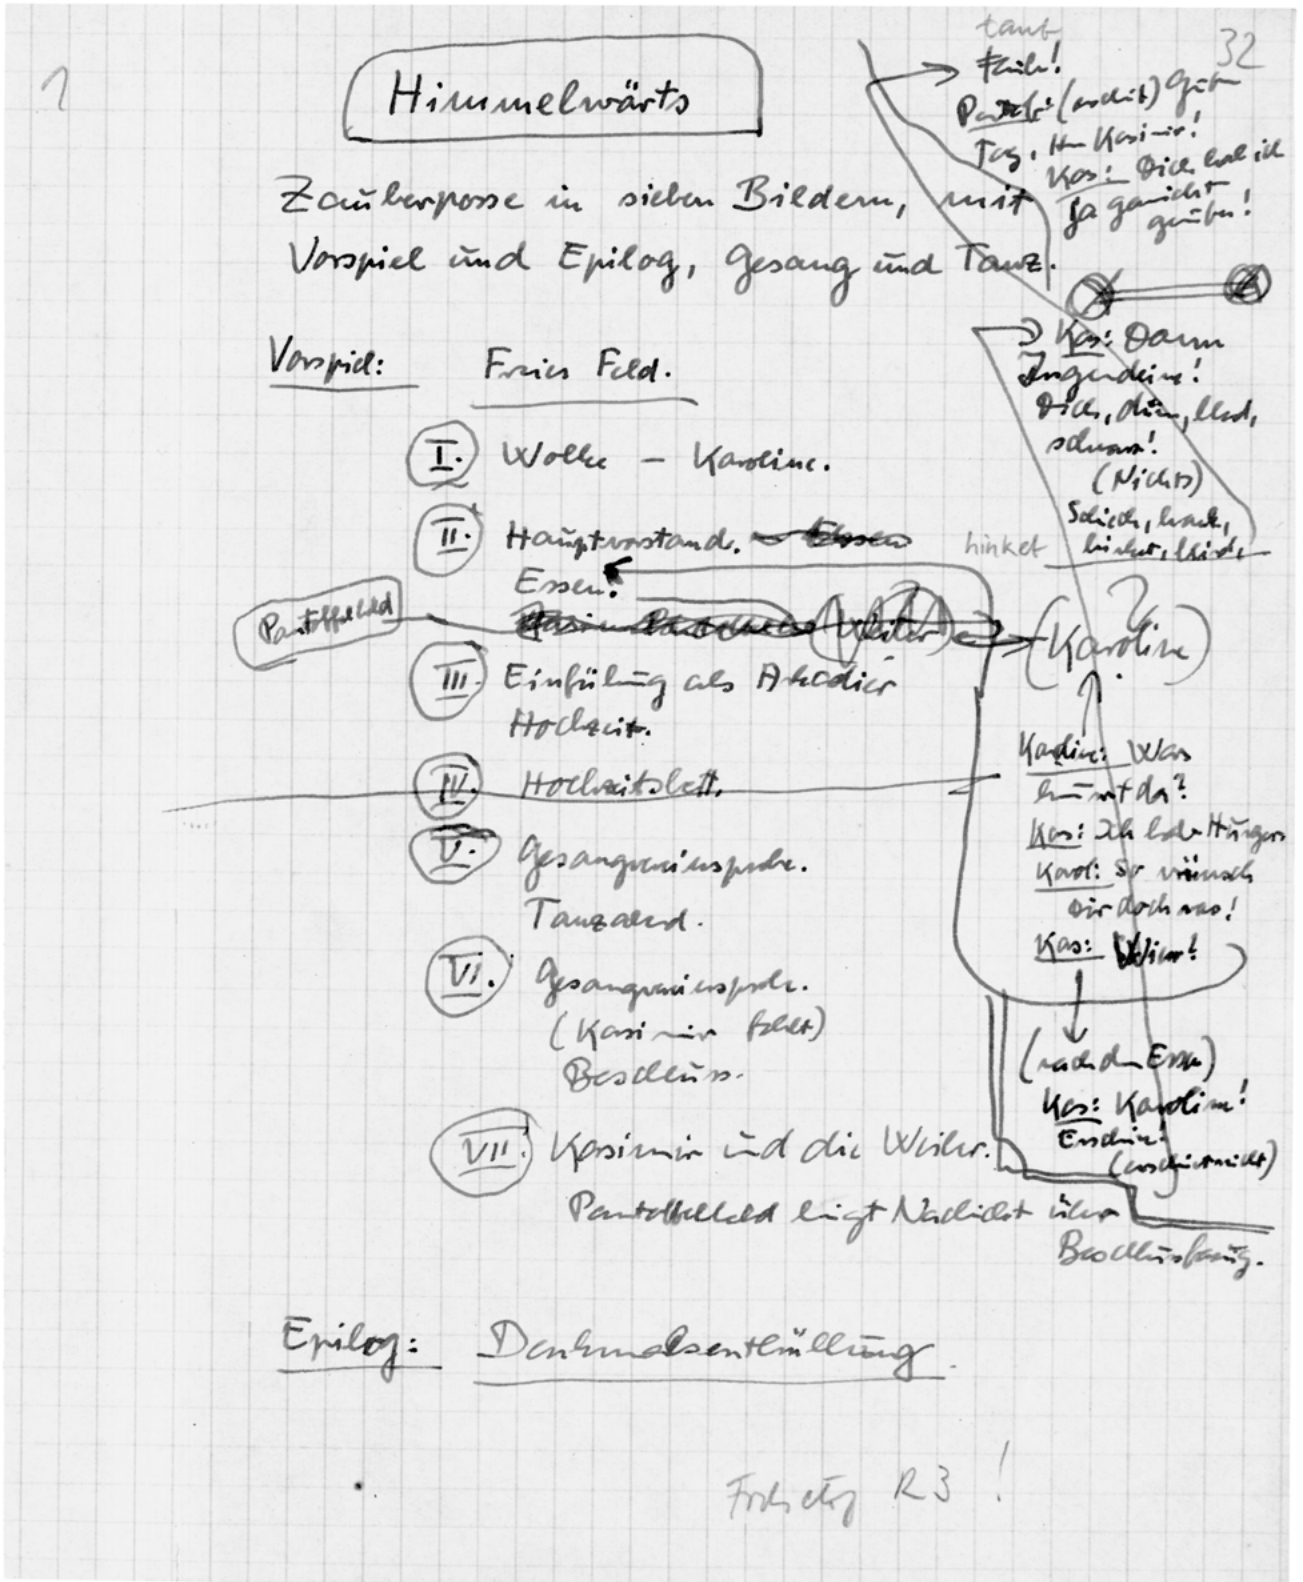 1
32
Himmelwärts
Zauberposse in sieben Bildern, mit
Vorspiel und Epilog, Gesang und Tanz.
Vorspiel: Freies Feld.
I. Wolke – Karoline.
II. Hauptvorstand. Essen
Essen.
Pantoffelheld
(Weiber)
(Karoline)
?
III. Einfülung als Arkadier
Hochzeit.
IV. Hochzeitsbett.
V. Gesangvereinsprobe.
Tanzabend.
VI. Gesangvereinsprobe.
(Kasimir fehlt)
Beschluss.
VII. Kasimir und die Weiber.
Pantoffelheld bringt Nachricht über
Beschlussfassung.
Epilog: Denkmalsenthüllung
R3 !
taub
(erscheint) Guten
Tag, Herr Kasimir!
Kas: Dich hab ich
ja garnicht
gerufen!
Kas: Dann
Irgendeine!
Dick, dünn, blond,
schwarz!
(Nichts)
hinket
Karoline: Was
kommt da?
Kas: Ich habe Hunger
Karol: So wünsch
Dir doch was!
Kas:
(nach dem Essen)
Kas: Karoline!
Erscheine!
(erscheint nicht)